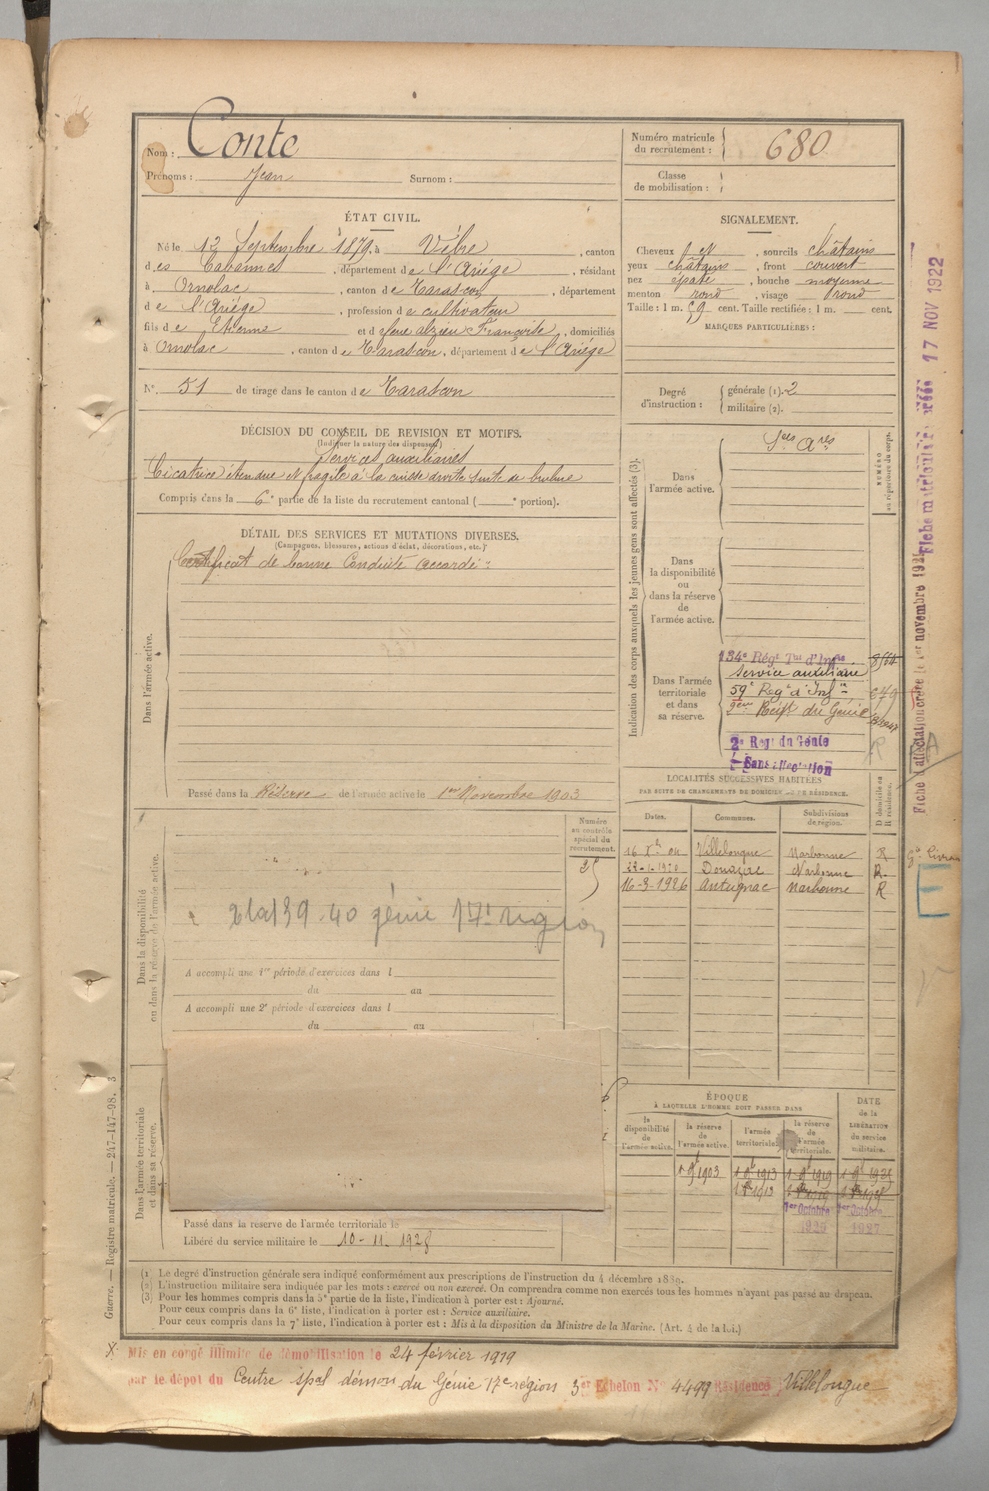 Nom : Conte
Prénoms : Jean Surnom :
Numéro matricule
du recrutement : 680
Classe
de mobilisation :
ÉTAT CIVIL.
Né le 12 Septembre 1879, à Vèbre, canton
des Cabannes, département de l'Ariége, résidant
à Ornolac, canton de Tarascon, département
de l'Ariége, profession de cultivateur
fils de Etienne et d Françoise, domiciliés
à Ornolac, canton de Tarascon, département de l'Ariége
N° 51 de tirage dans le canton de Tarascon
SIGNALEMENT.
Cheveux et, sourcils châtains
yeux châtains, front couvert
nez épaté, bouche moyenne
menton rond, visage rond
Taille : 1 m. 59 cent. Taille rectifiée : 1 m. cent.
MARQUES PARTICULIÈRES :
Degré
d'instruction : générale (1). 2
militaire (2).
DÉCISION DU CONSEIL DE REVISION ET MOTIFS.
(Indiquer la nature des dispenses)
Services auxiliaires
Cicatrice étendue et fragile à la cuisse droite suite de brulure
Compris dans la 6e partie de la liste du recrutement cantonal ( e portion).
DÉTAIL DES SERVICES ET MUTATIONS DIVERSES.
(Campagnes, blessures, actions d'éclat, décorations, etc.)
Certificat de bonne Conduite accordé
Dans l'armée active.
Passé dans la Réserve de l'armée active le 1er Novembre 1903
Indication des corps auxquels les jeunes gens sont affectés (3).
NUMÉRO
au répertoire du corps.
Dans
l'armée active.
Sces Ares
Dans
la disponibilité
ou
dans la réserve
de
l'armée active.
Dans l'armée
territoriale
et dans
sa réserve.
134e Régt Tal d'Infie
Service auxiliaire
59e Regt d'Infie
2eme Regt du Génie
2e Regt du Génie
Sans affectation
LOCALITÉS SUCCESSIVES HABITÉES
PAR SUITE DE CHANGEMENTS DE DOMICILE OU DE RÉSIDENCE.
Dates. Communes. Subdivisions
de région. D domicile ou
R résidence.
16 Xbre 04 Villelongue Narbonne R
Narbonne R
16-3-1926 Antugnac Narbonne R
Numéro
au contrôle
spécial du
recrutement.
25
Dans la disponibilité
ou dans la réserve de l'armée active.
39-40 génie 17e région
A accompli une 1re période d'exercices dans l
du au
A accompli une 2e période d'exercices dans l
du au
Dans l'armée territoriale
et dans sa réserve.
Passé dans la réserve de l'armée territoriale le
Libéré du service militaire le 10-11-1928
ÉPOQUE
À LAQUELLE L'HOMME DOIT PASSER DANS
la
disponibilité
de
l'armée active. la réserve
de
l'armée active. l'armée
territoriale. la réserve
de
l'armée
territoriale. DATE
de la
LIBÉRATION
du service
militaire.
1 9bre 1903 1 9bre 1913 1 9bre 1919
1er Octobre 1er Octobre
1927
(1) Le degré d'instruction générale sera indiqué conformément aux prescriptions de l'instruction du 4 décembre 1889.
(2) L'instruction militaire sera indiquée par les mots : exercé ou non exercé. On comprendra comme non exercés tous les hommes n'ayant pas passé au drapeau.
(3) Pour les hommes compris dans la 5e partie de la liste, l'indication à porter est : Ajourné.
Pour ceux compris dans la 6e liste, l'indication à porter est : Service auxiliaire.
Pour ceux compris dans la 7e liste, l'indication à porter est : Mis à la disposition du Ministre de la Marine. (Art. 4 de la loi.)
Mis en congé illimité de démobilisation le 24 février 1919
par le dépôt du Centre spal démon du Génie 17e région 3er Echelon N° 4499 Résidence Villelongue
Guerre. — Registre matricule. — 247-147-98.
Fiche matricule 17 NOV 1922
Fiche d'affectation créée le 1er novembre
E